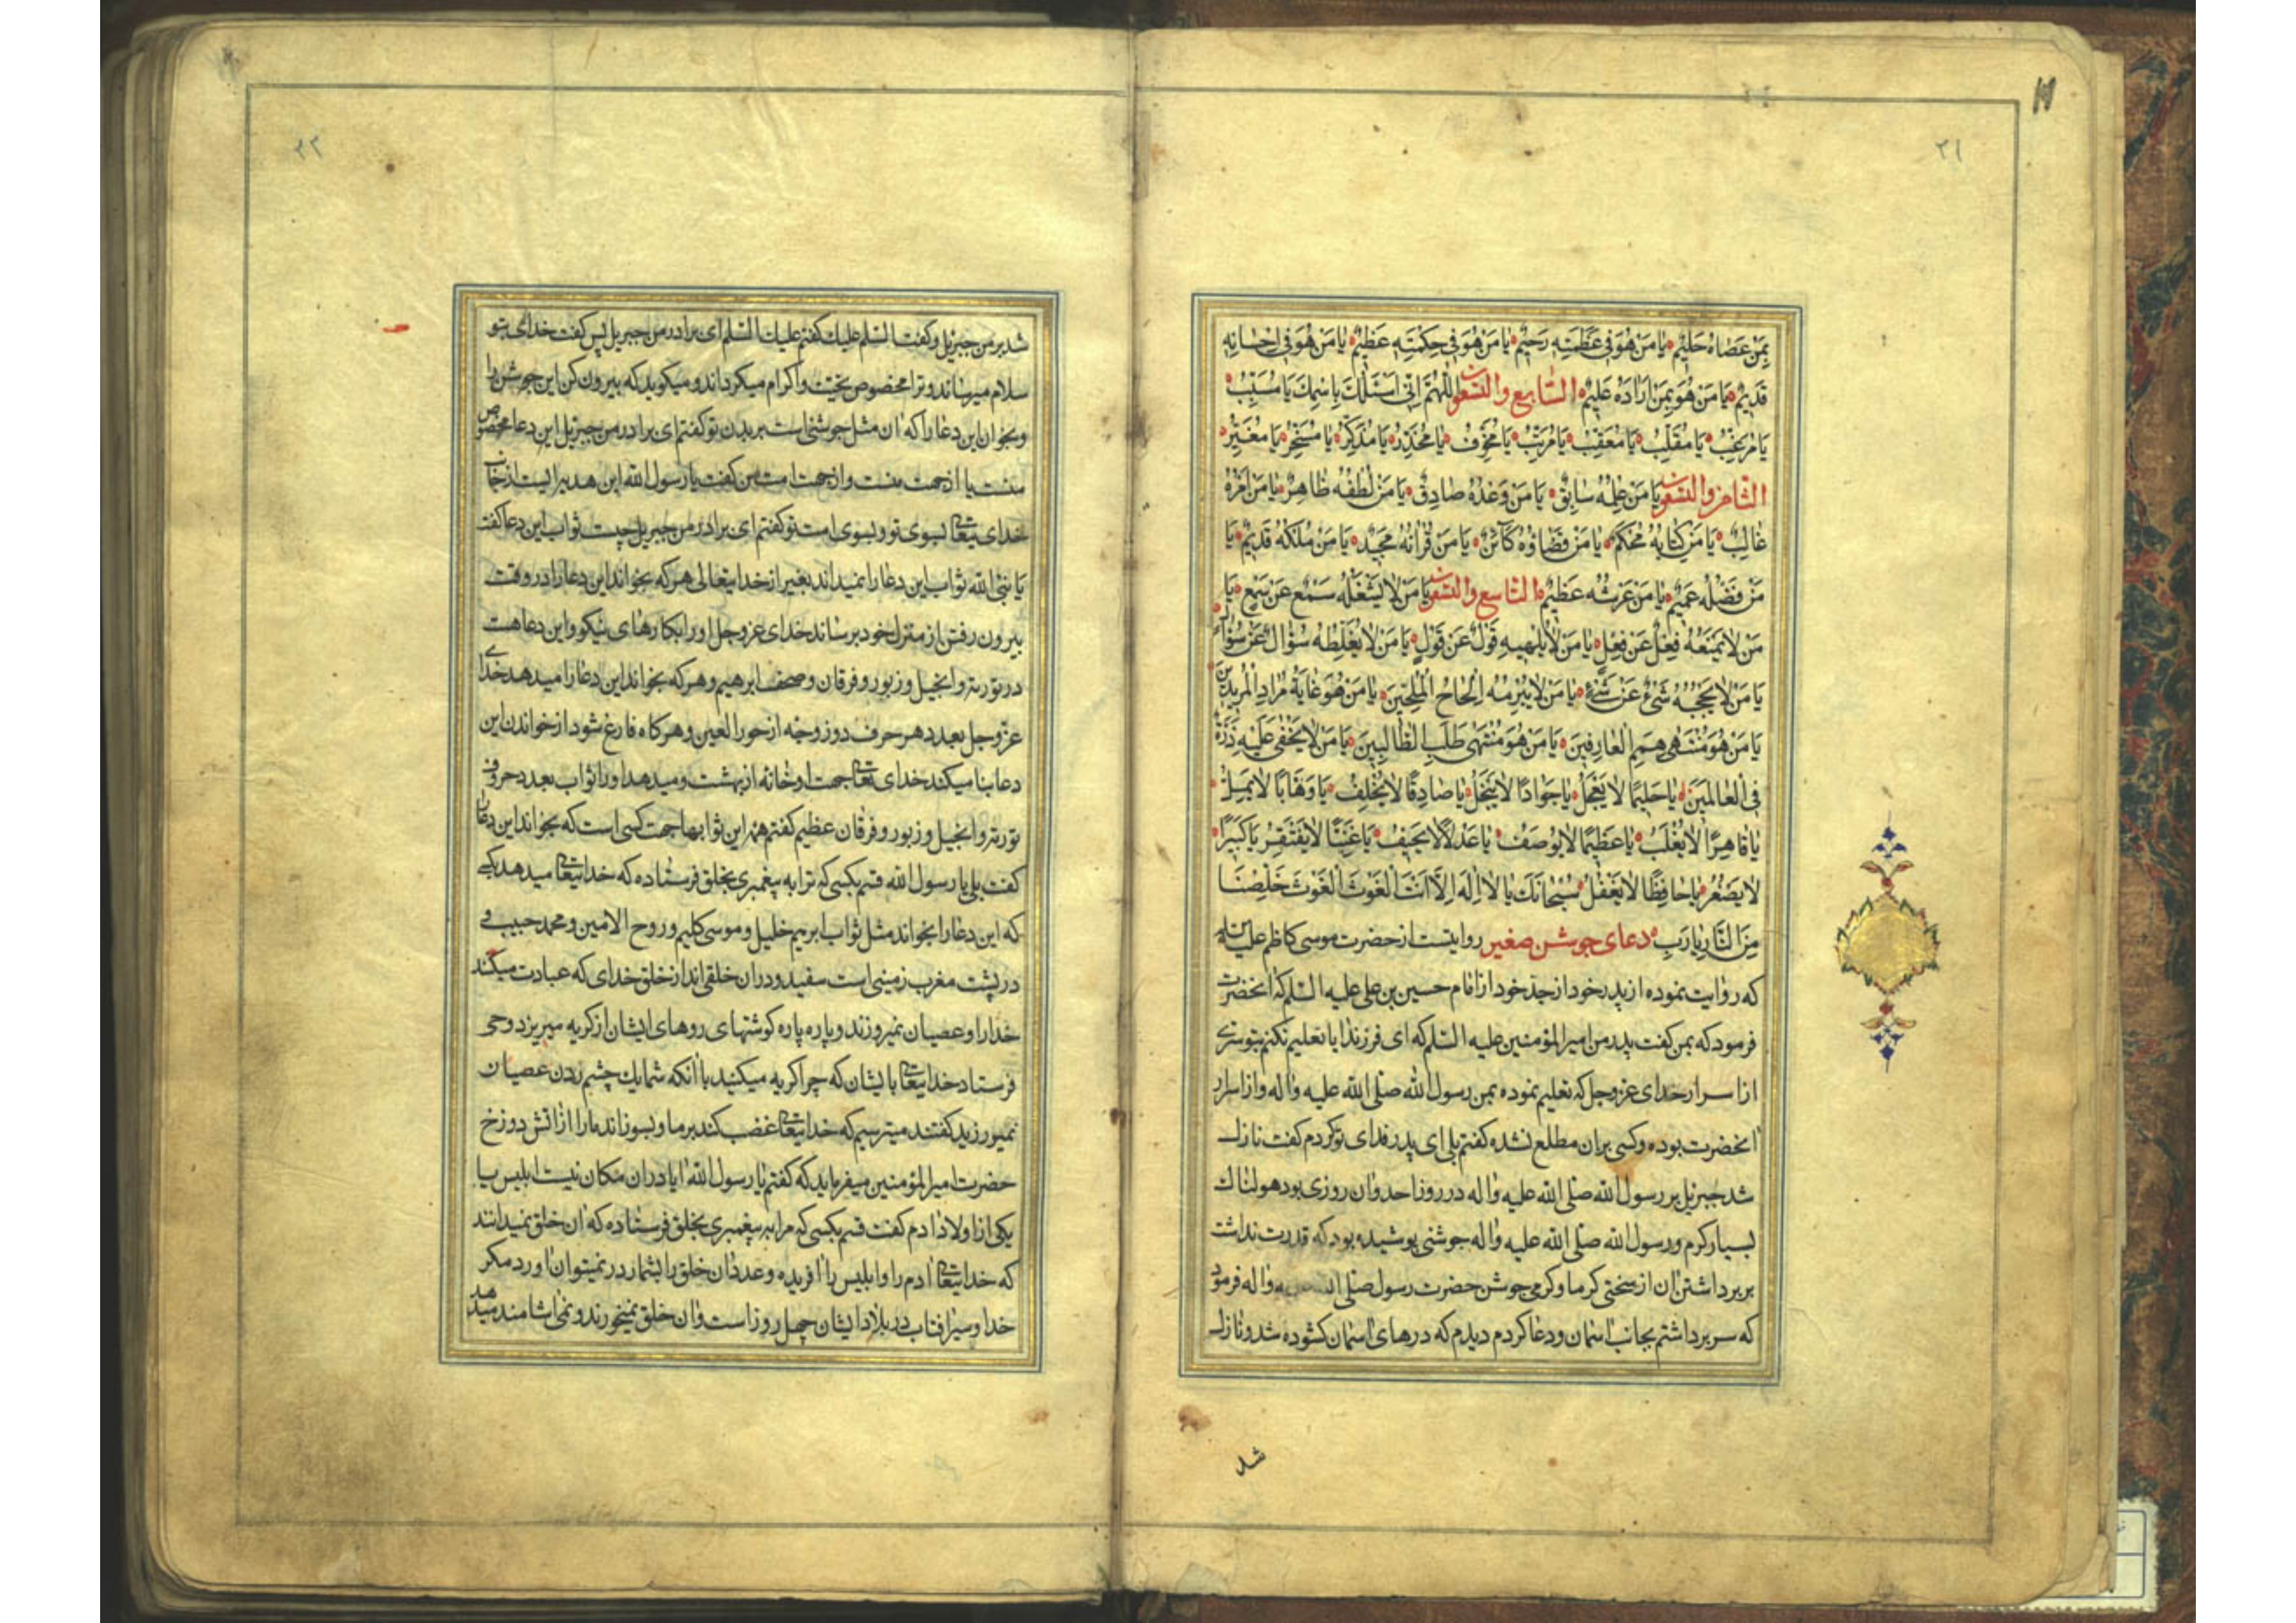 ۲۱
بِمَنْ عَصَاهُ حَلِيمٌ يَا مَنْ هُوَ فِي عَظَمَتِهِ رَحِيمٌ يَا مَنْ هُوَ فِي حِكْمَتِهِ عَظِيمٌ يَا مَنْ هُوَ فِي اِحْسَانِهِ
قَدِيمٌ يَا مَنْ هُوَ بِمَنْ اَرَادَهُ عَلِيمٌ السّابع والتسعون اَللّٰهُمَّ اِنّى اَسْئَلُكَ بِاسْمِكَ يَا مُسَبِّبُ
يَا مُرَغِّبُ يَا مُقَلِّبُ يَا مُعَقِّبُ يَا مُرَتِّبُ يَا مُخَوِّفُ يَا مُحَذِّرُ يَا مُذَكِّرُ يَا مُسَخِّرُ يَا مُغَيِّرُ
الثامن والتسعون يَا مَنْ عِلْمُهُ سَابِقٌ يَا مَنْ وَعْدُهُ صَادِقٌ يَا مَنْ لُطْفُهُ ظَاهِرٌ يَا مَنْ اَمْرُهُ
غَالِبٌ يَا مَنْ كِتَابُهُ مُحْكَمٌ يَا مَنْ قَضَاؤُهُ كَآئِنٌ يَا مَنْ قُرْاٰنُهُ مَجِيدٌ يَا مَنْ مُلْكُهُ قَدِيمٌ يَا
مَنْ فَضْلُهُ عَمِيمٌ يَا مَنْ عَرْشُهُ عَظِيمٌ التاسع والتسعون يَا مَنْ لَا يَشْغَلُهُ سَمْعٌ عَنْ سَمْعٍ يَا
مَنْ لَا يَمْنَعُهُ فِعْلٌ عَنْ فِعْلٍ يَا مَنْ لَا يُلْهِيهِ قَوْلٌ عَنْ قَوْلٍ يَا مَنْ لَا يُغَلِّطُهُ سُؤَالٌ عَنْ سُؤَالٍ
يَا مَنْ لَا يَحْجُبُهُ شَيْءٌ عَنْ شَيْءٍ يَا مَنْ لَا يُبْرِمُهُ اِلْحَاحُ الْمُلِحِّينَ يَا مَنْ هُوَ غَايَةُ مُرَادِ الْمُرِيدِينَ
يَا مَنْ هُوَ مُنْتَهٰى هِمَمِ الْعَارِفِينَ يَا مَنْ هُوَ مُنْتَهٰى طَلَبِ الطَّالِبِينَ يَا مَنْ لَا يَخْفٰى عَلَيْهِ ذَرَّةٌ
فِي الْعَالَمِينَ يَا حَلِيمًا لَا يَعْجَلُ يَا جَوَادًا لَا يَبْخَلُ يَا صَادِقًا لَا يُخْلِفُ يَا وَهَّابًا لَا يَمَلُّ
يَا قَاهِرًا لَا يُغْلَبُ يَا عَظِيمًا لَا يُوصَفُ يَا عَدْلًا لَا يَحِيفُ يَا غَنِيًّا لَا يَفْتَقِرُ يَا كَبِيرًا
لَا يَصْغُرُ يَا حَافِظًا لَا يَغْفُلُ سُبْحَانَكَ يَا لَا اِلٰهَ اِلَّا اَنْتَ الْغَوْثَ الْغَوْثَ خَلِّصْنَا
مِنَ النَّارِ يَا رَبِّ دعاى جوشن صغير روايتست از حضرت موسى كاظم عليه السلم
كه روايت نموده از پدر خود از جد خود از امام حسين بن على عليه السّلم كه انحضرت
فرمود كه بمن كفت پدر من امير المؤمنين عليه السّلم كه اى فرزند ايا تعليم نكنم بتو سرى
از اسرار خداى عز وجل كه تعليم نموده بمن رسول الله صلى الله عليه واله واز اسرار
انحضرت بوده وكسى بران مطلع نشده كفتم بلى اى پدر فداى تو كردم كفت نازل
شد جبرئيل بر رسول الله صلى الله عليه واله در روز احد وان روزى بود هولناك
بسيار كرم ورسول الله صلى الله عليه واله جوشنى پوشيده بود كه قدرت نداشت
بر برداشتن ان از سختى كرما وكرمى جوشن حضرت رسول صلى واله فرمود
كه سر برداشتم بجانب اسمان ودعا كردم ديدم كه درهاى اسمان كشوده شد ونازل
شد
۲۲
شد بر من جبرئيل وكفت السّلم عليك كفتم عليك السّلم اى برادر من جبرئيل پس كفت خداى بتو
سلام ميرساند وترا مخصوص بتحيت واكرام ميكرداند وميكويد كه بيرون كن اين جوشن را
وبخوان اين دعا را كه ان مثل جوشنى است بر بدن تو كفتم اى برادر من جبرئيل اين دعا مخصوص
منست يا از جهت منست واز جهت امت من كفت يا رسول الله اين هديه ايست از جانب
خداى تعالى بسوى تو وبسوى امت تو كفتم اى برادر من جبرئيل چيست ثواب اين دعا كفت
يا نبى الله ثواب اين دعا را نميداند بغير از خدايتعالى هركه بخواند اين دعا را در وقت
بيرون رفتن از منزل خود برساند خداى عز وجل او را بكارهاى نيكو واين دعا هست
در تورية وانجيل وزبور وفرقان وصحف ابرهيم وهركه بخواند اين دعا را ميدهد خداى
عز وجل بعدد هر حرف دو زوجه از حور العين وهركاه فارغ شود از خواندن اين
دعا بنا ميكند خداى تعالى جهت او خانه از بهشت وميدهد او را ثواب بعدد حروف
تورية وانجيل وزبور وفرقان عظيم كفتم همه اين ثوابها جهت كسى است كه بخواند اين دعا را
كفت بلى يا رسول الله قسم بكسى كه ترا به پيغمبرى بخلق فرستاده كه خدايتعالى ميدهد بكسى
كه اين دعا را بخواند مثل ثواب ابرهيم خليل وموسى كليم وروح الامين ومحمد حبيب و
در پشت مغرب زمينى است سفيد ودران خلقى اند از خلق خداى كه عبادت ميكنند
خدا را وعصيان نميورزند وپاره پاره كوشتهاى روهاى ايشان از كريه ميريزد وحى
فرستاد خدايتعالى بايشان كه چرا كريه ميكنيد با انكه شما يك چشم زدن عصيان
نميورزيد كفتند ميترسيم كه خدايتعالى غضب كند بر ما وبسوزاند ما را از اتش دوزخ
حضرت امير المؤمنين ميفرمايد كه كفتم يا رسول الله ايا دران مكان نيست ابليس يا
يكى از اولاد ادم كفت قسم بكسى كه مرا به پيغمبرى بخلق فرستاده كه ان خلق نميدانند
كه خدايتعالى ادم را وابليس را افريده وعدد ان خلق را بشمار در نميتوان اورد مكر
خدا وسير افتاب در بلاد ايشان چهل روز است وان خلق نميخورند ونمى اشامند ميدهد